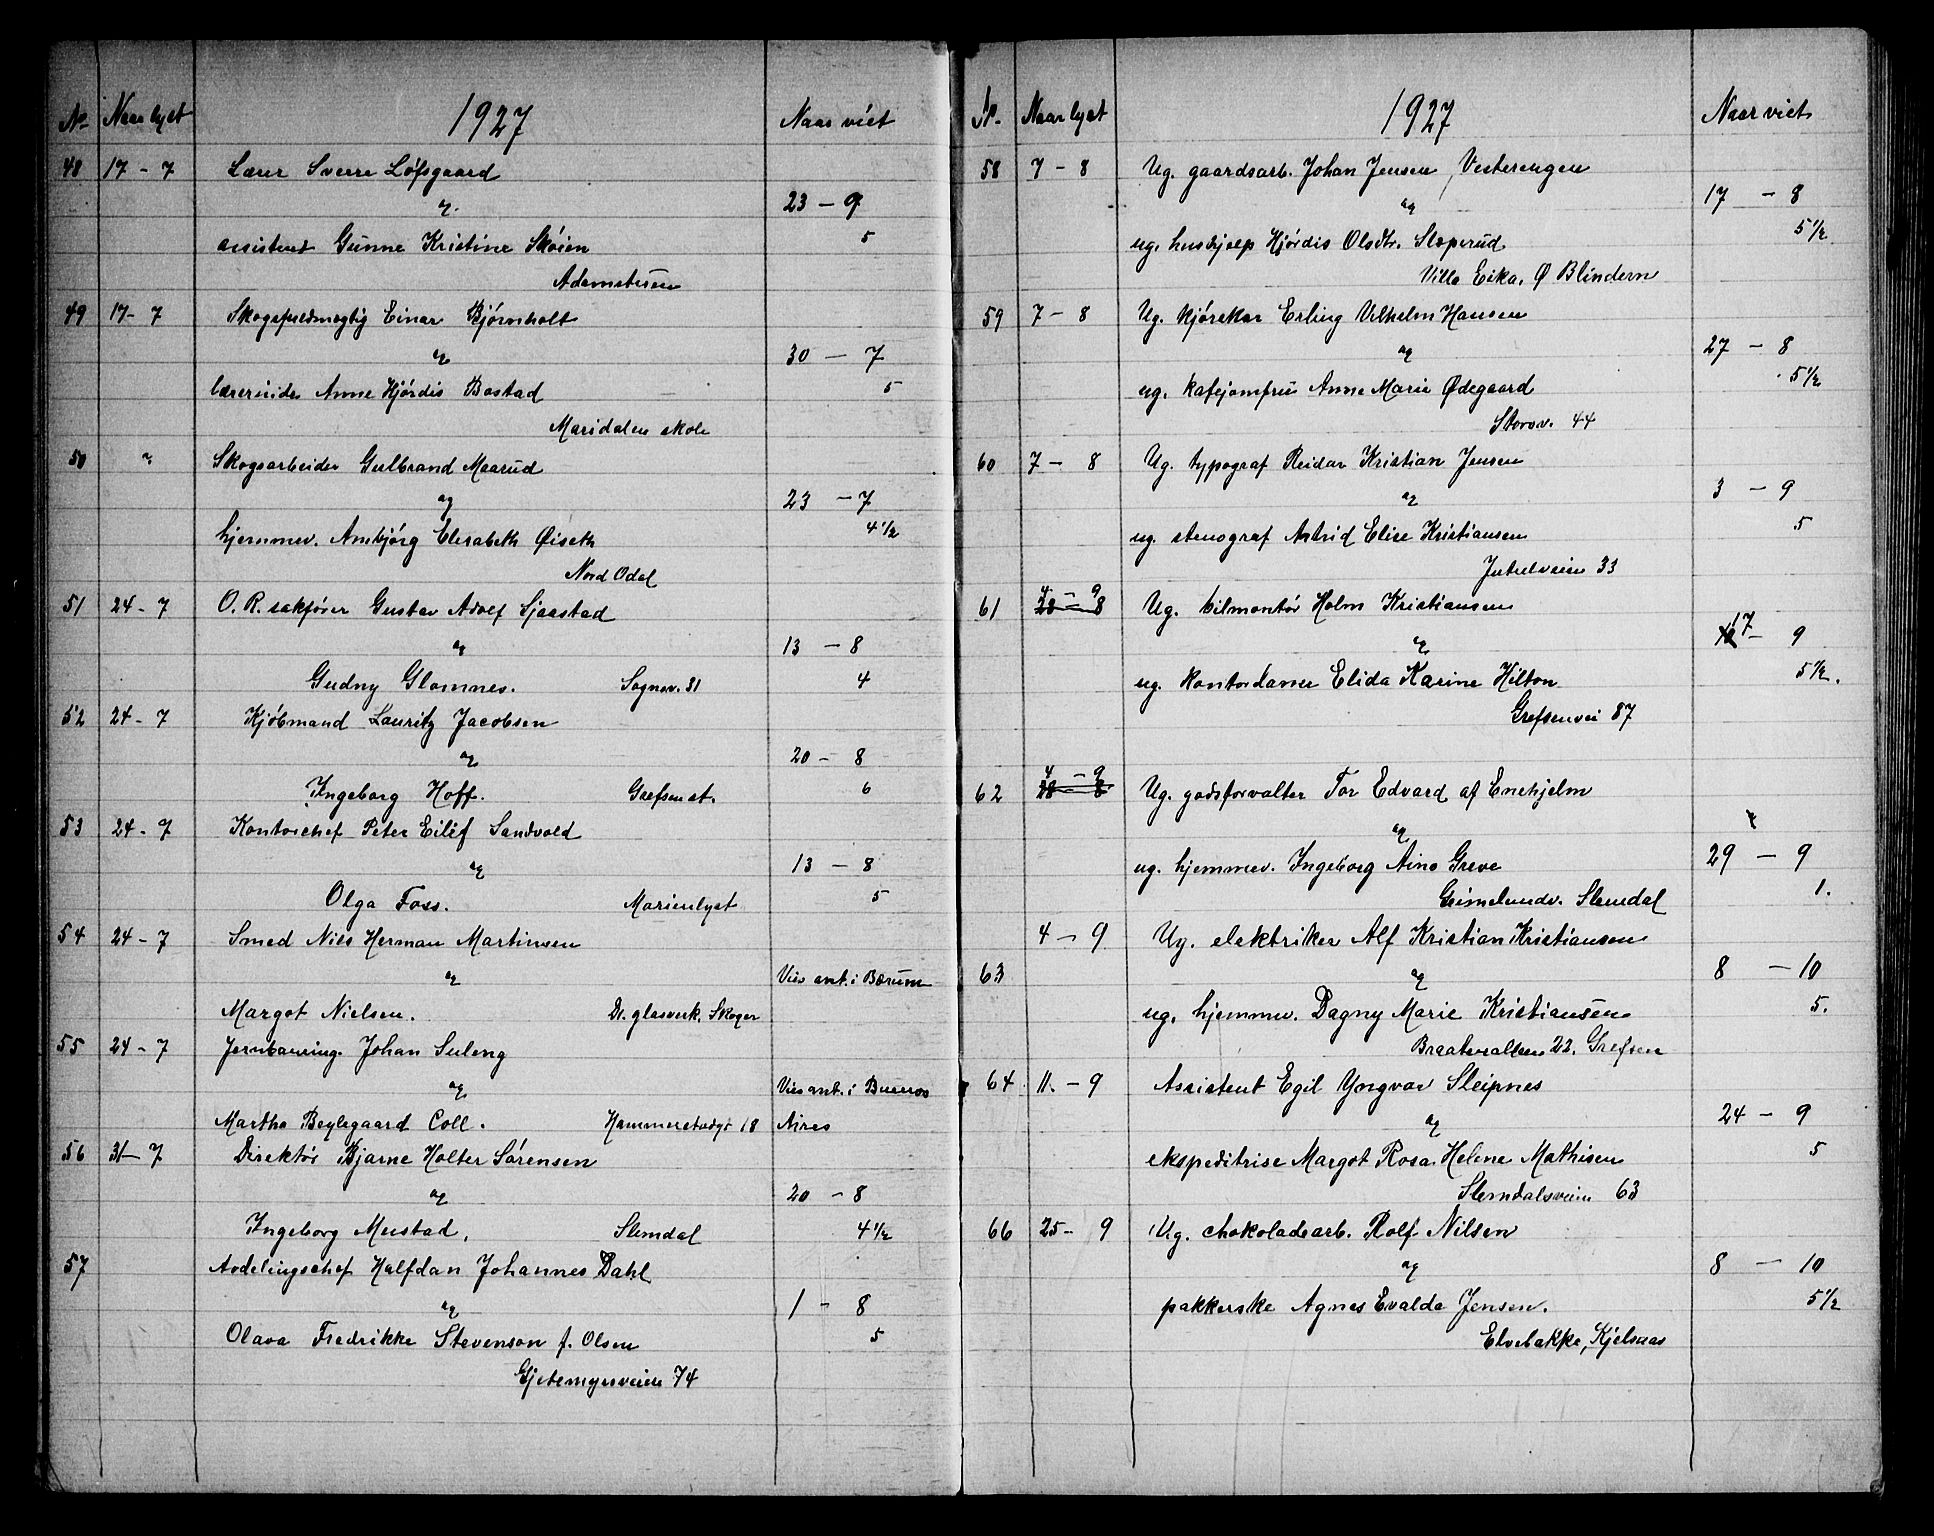 No. Naar lyst 1927 Naar viet
48 17 - 7 Lærer Sverre Løfsgaard
og 23 - 9
assistent Gunne Kristine Skøien 5
Adamstuen
49 17 - 7 Skogsfuldmægtig Einar Bjørnholt
og 30 - 7
lærerinde Anne Hjørdis Bostad 5
Maridalen skole
50 " Skogsarbeider Gulbrand Maarud
og 23 - 7
hjemmev. Ambjørg Elisabeth Øiseth 4 1/2
Nord Odal
51 24 - 7 O. R. sakfører Gustav Adolf Sjaastad
og 13 - 8
Gudny Glomnes. Sognsv. 31 4
52 24 - 7 Kjøbmand Lauritz Jacobsen
og 20 - 8
Ingeborg Hoff. Grefsen st. 6
53 24 - 7 Kontorchef Peter Eilif Sandvold
og 13 - 8
Olga Foss. Marienlyst 5
54 24 - 7 Smed Nils Herman Martinsen
og Vies ant. i Bærum
Margot Nielsen. Dr. glasverk. Skoger
55 24 - 7 Jernbaneing. Johan Suleng
og Vies ant. i Buenos
Martha Beylegaard Coll. Hammerstadgt 18 Aires
56 31 - 7 Direktør Bjarne Holter Sørensen
og 20 - 8
Ingeborg Mustad, Slemdal 4 1/2
57 Avdelingschef Halfdan Johannes Dahl
og 1 - 8
Olava Fredrikke Stevenson f. Olsen 5
Gjetemyrsveien 74
No. Naar lyst 1927 Naar viet
58 7 - 8 Ug. gaardsarb. Johan Jensen, Vesterengen
og 17 - 8
ug. hushjælp Hjørdis Olsdtr. Slæperud 5 1/2
Villa Eika, Ø Blindern
59 7 - 8 Ug. kjørekar Erling Vilhelm Hansen
og 27 - 8
ug. kafejomfru Anne Marie Ødegaard 5 1/2
Storov. 44
60 7 - 8 Ug. typograf Reidar Kristian Jensen
og 3 - 9
ug. stenograf Astrid Elise Kristiansen 5
Jutulveien 33
4 - 9
61 28 - 8 Ug. bilmontør Holm Kristiansen
og 17 - 9
ug. kontordame Elida Karine Hilton 5 1/2.
Grefsenvei 87
4 - 9
62 28 - 8 Ug. godsforvalter Tor Edvard af Enehjelm
og
ug. hjemmev. Ingeborg Aino Greve 29 - 9
Grimelundv. Slemdal 1.
4 - 9 Ug. elektriker Alf Kristian Kristiansen
63 og 8 - 10
ug. hjemmev. Dagny Marie Kristiansen 5.
Braatenalleen 22. Grefsen
64 11. - 9 Assistent Egil Yngvar Sleipnes
og 24 - 9
ekspeditrise Margot Rosa Helene Mathisen 5
Slemdalsveien 63
66 25 - 9 Ug. chokoladearb. Rolf Nilsen
og 8 - 10
pakkerske Agnes Evalda Jensen. 5 1/2
Elvebakke, Kjelsaas